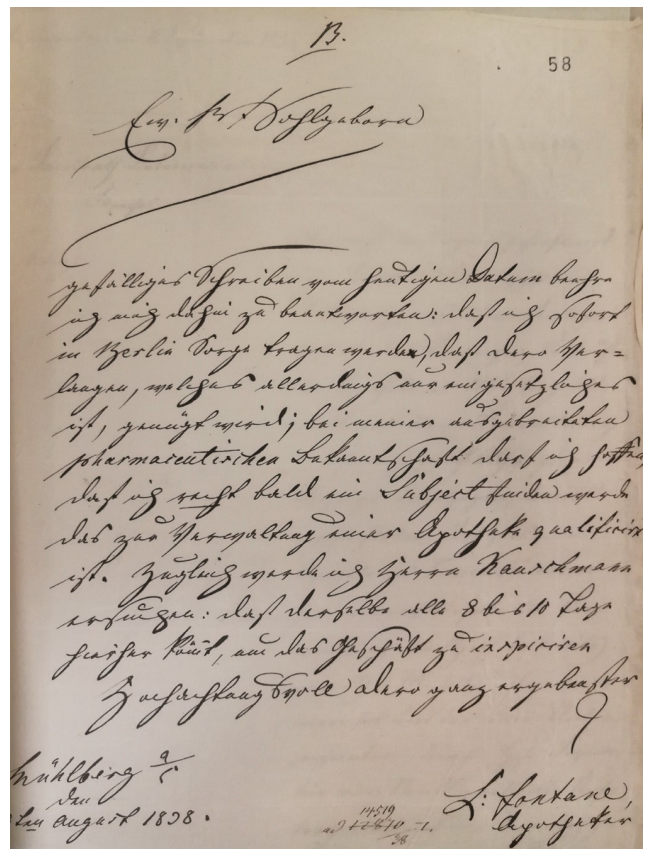 B.
58
Ew. Wohlgeborn
gefälliges Schreiben vom heutigen Datum beehre
ich mich dahin zu beantworten: daß ich sofort
in Berlin Sorge tragen werde, daß dero Ver=
langen, welches allerdings nur ein gesetzliches
ist, genügt wird; bei meiner ausgebreiteten
pharmaceutischen Bekanntschaft darf ich hoffen,
daß ich recht bald ein Subject finden werde
das zur Verwaltung einer Apotheke qualificirt
ist. Zugleich werde ich Herrn Kauschmann
ersuchen: daß derselbe alle 8 bis 10 Tage
hierher kömt, um das Geschäft zu inspiciren
Hochachtungsvoll dero ganz ergebenster
Mühlberg a/E
den
ten August 1838.
L: Fontane,
Apotheker
14519